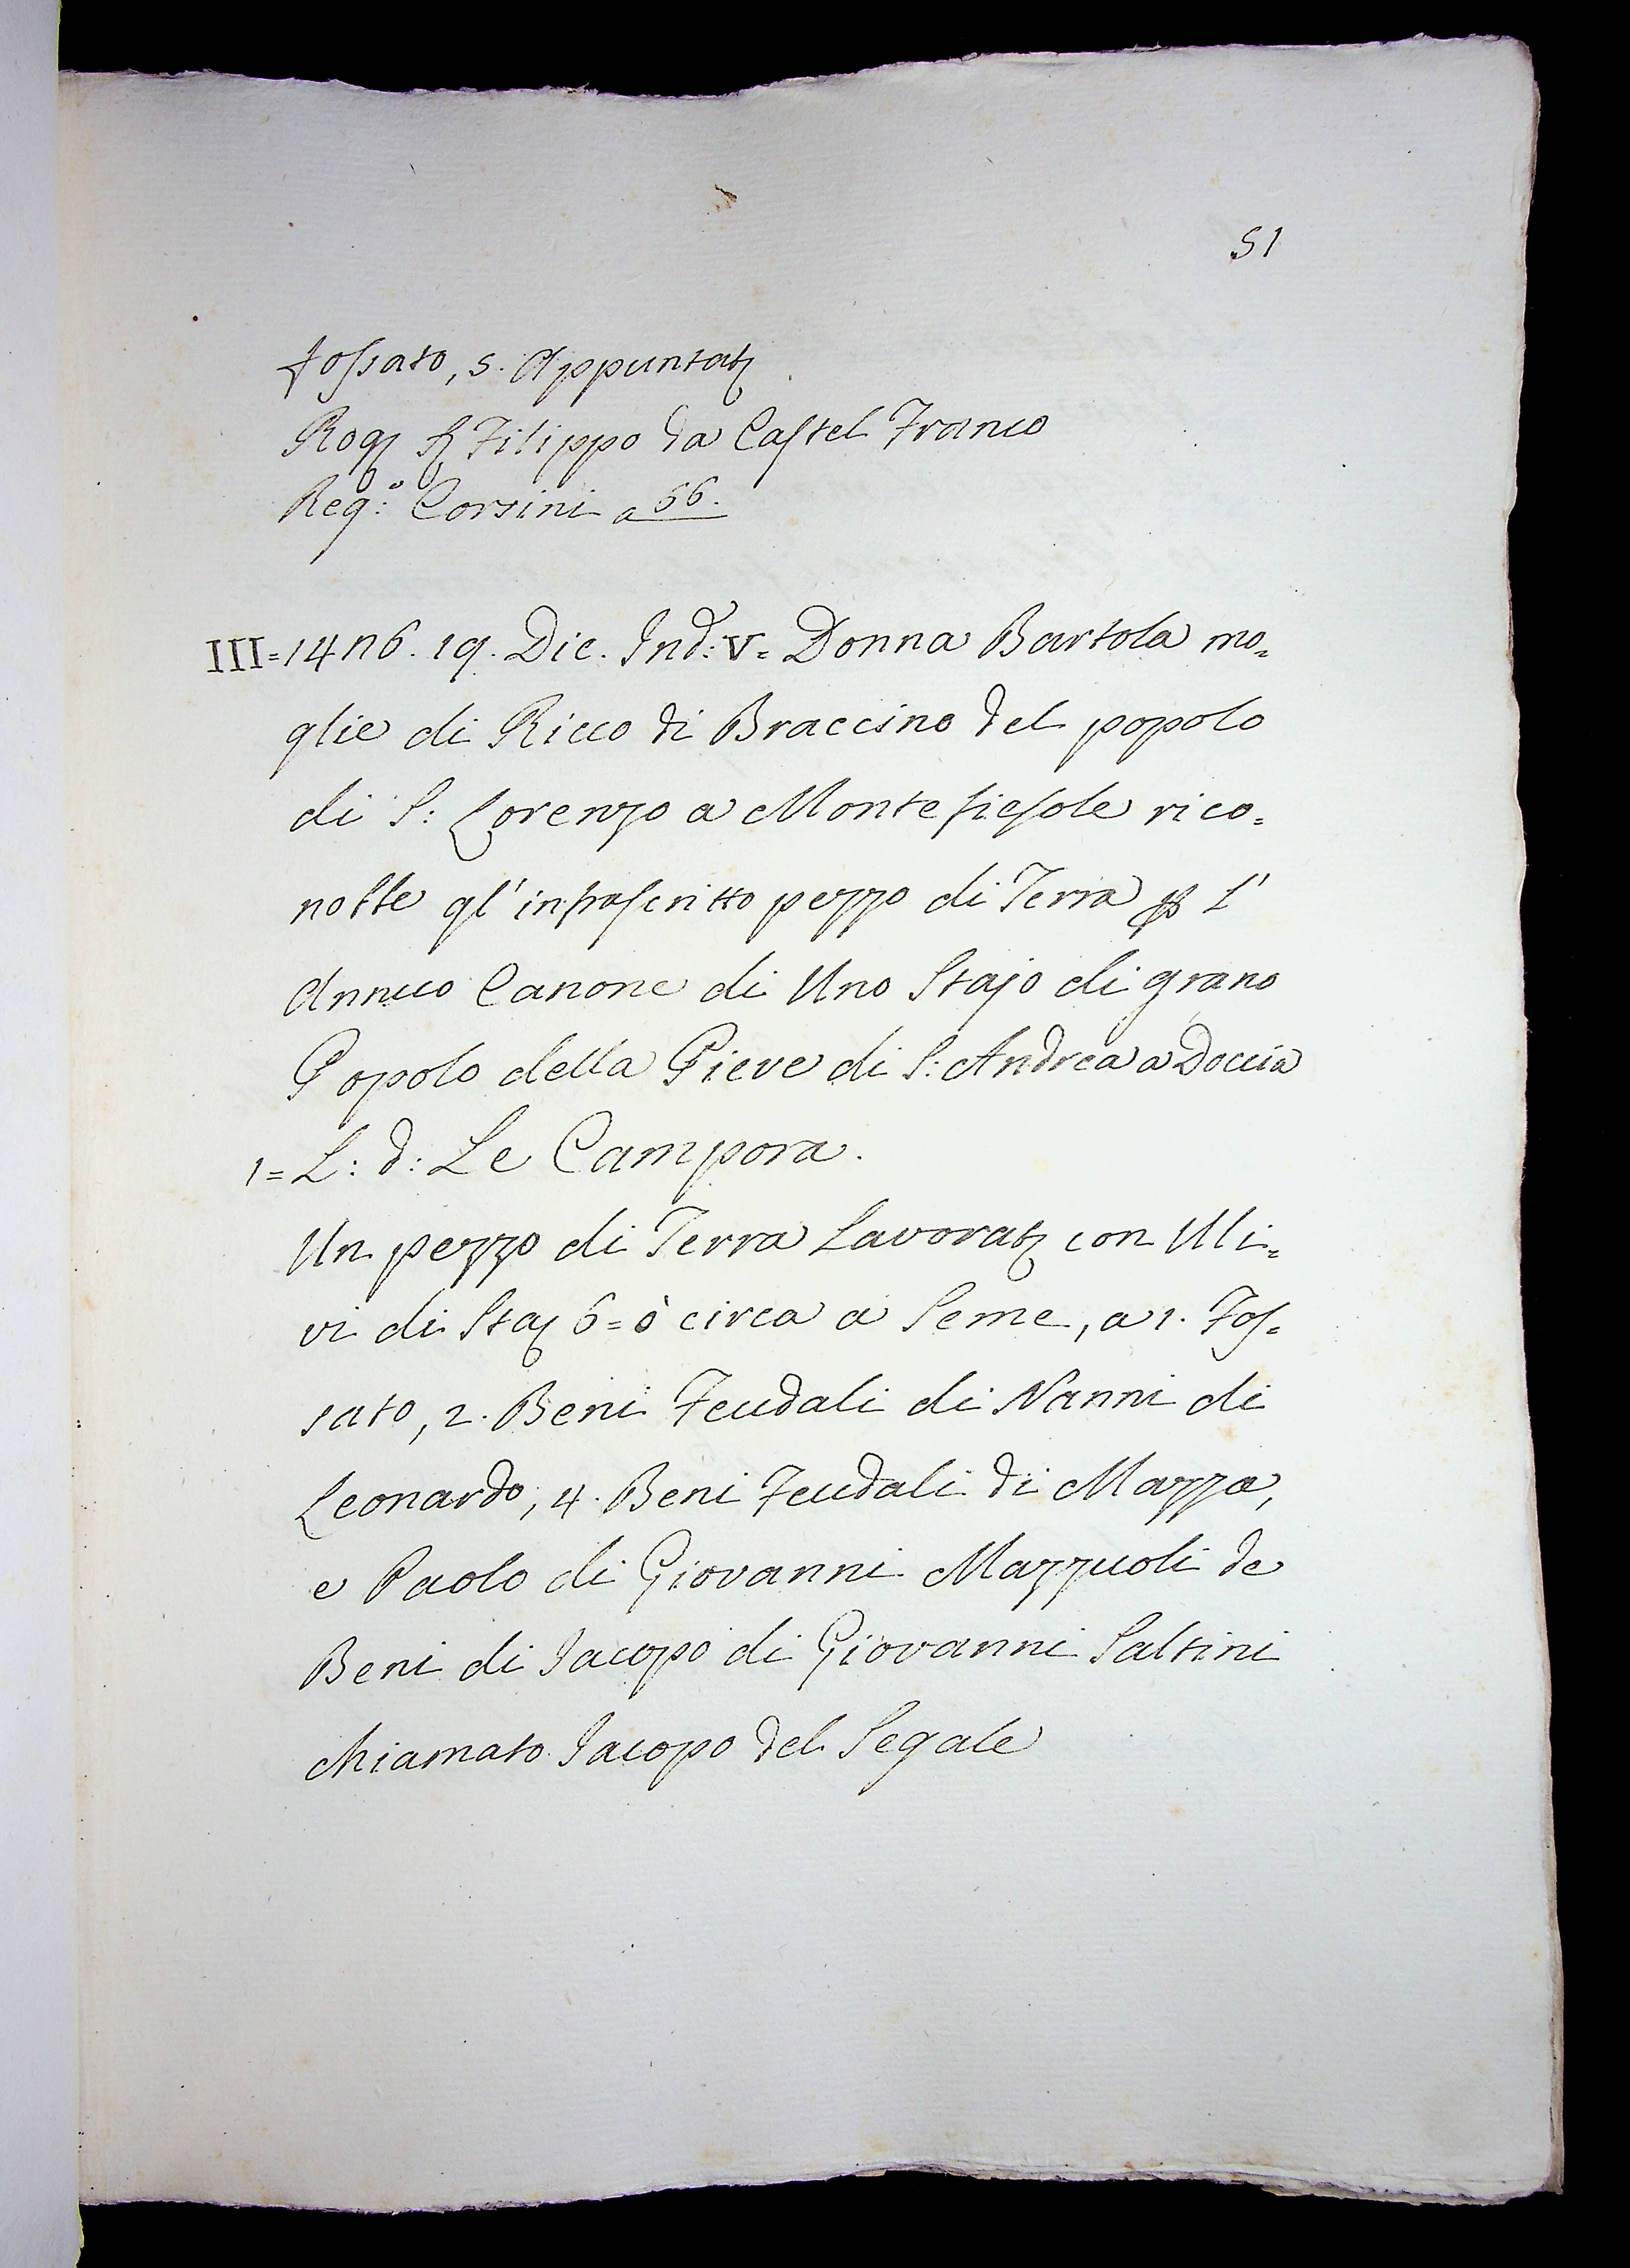 51
fossato, 5. Appuntat
Rog Filippo da Castel Franco
Reg:° Corsini a 56.
III = 1426. 19. Dic. Ind: V = Donna Bartola mo=
glie di Ricco di Braccino del popolo
di S: Lorenzo a Montefiesole rico=
nobbe gl' infrascritto pezzo di Terra l'
Annuo Canone di Uno Stajo di grano
Popolo della Pieve di S: Andrea a Doccia
1 = L: d: Le Campora.
Un pezzo di Terra Lavorat con Uli=
vi di Sta 6 = ò circa a Seme, a 1. Fos=
sato, 2. Beni Feudali di Nanni di
Leonardo, 4. Beni Feudali di Mazza,
e Paolo di Giovanni Mazzuoli de
Beni di Jacopo di Giovanni Saltini
chiamato Jacopo del Segale